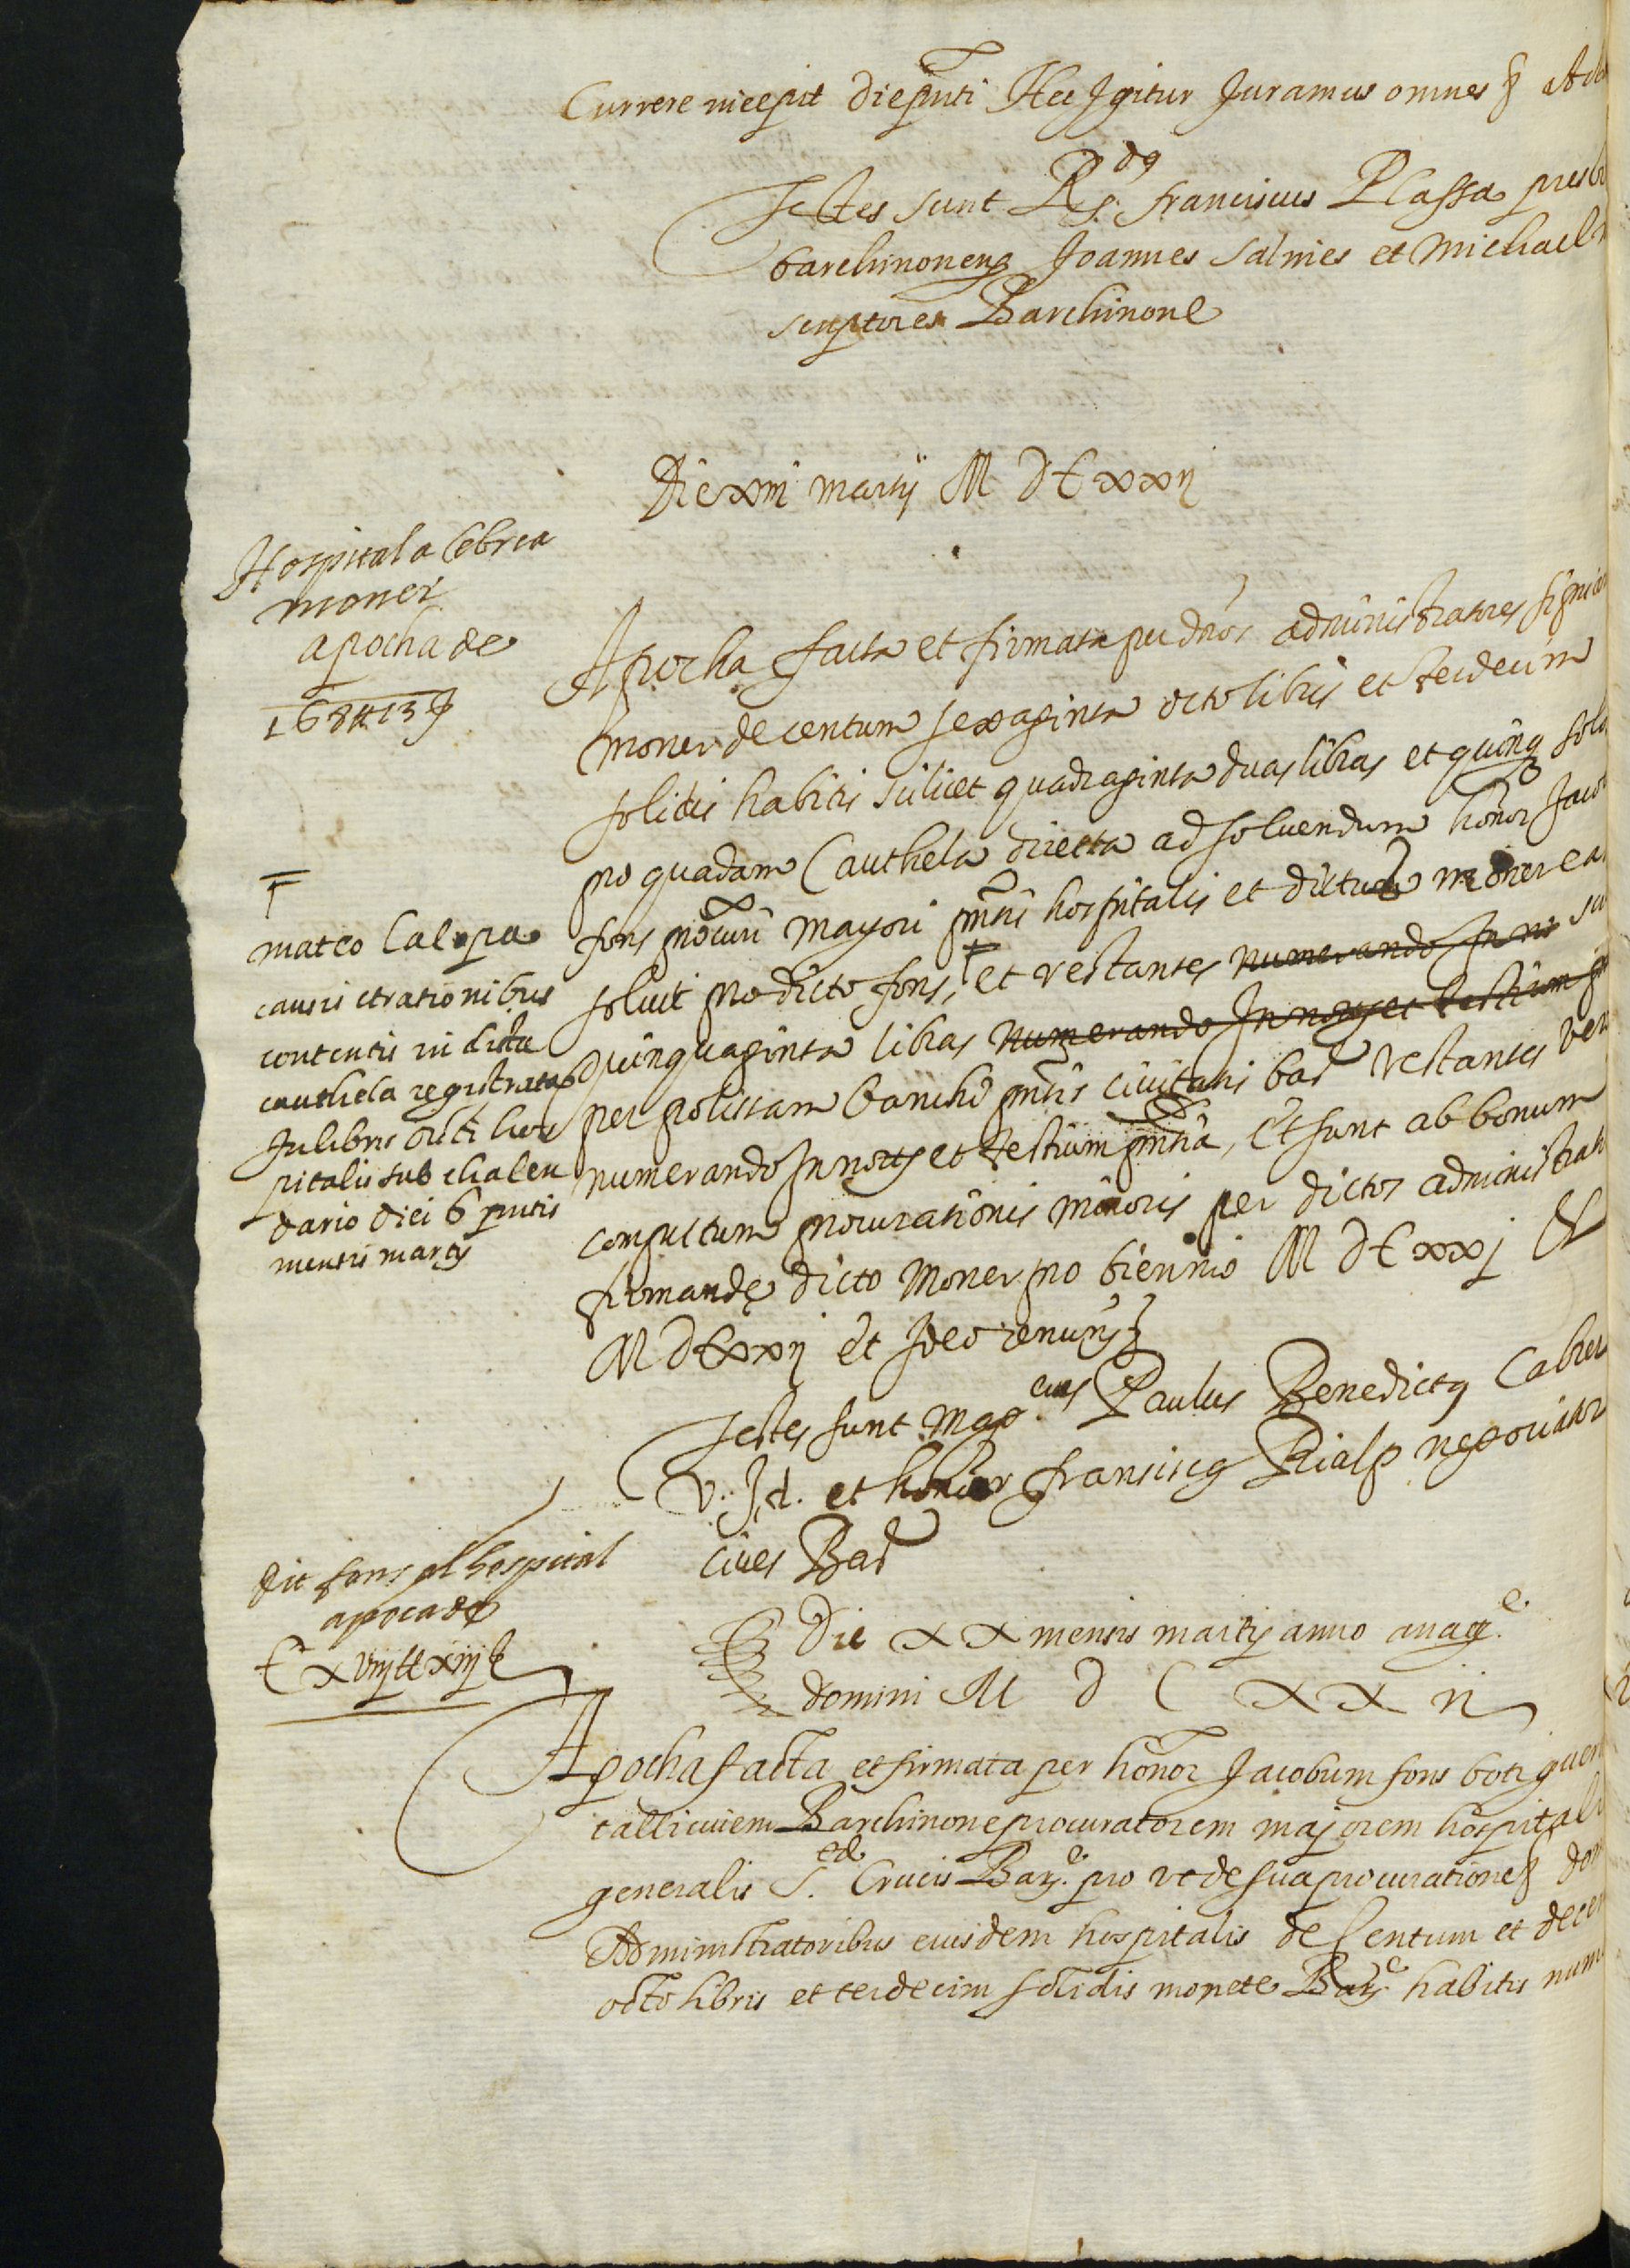 Currere incepit die pnti Hec Igitur Juramus omnes
Testes sunt Rds. franciscus Plassa presb
barchinoneng Joannes salnies et Michael
scriptores Barchinone
Die xiii martij M d C xxij
Hospital a Cebria
moner
apocha de
168 ₶ 13 ȷ
Apocha facta et firmata per dnos administratores
moner de centum sexaginta octo libris et terdecim
solidis habitis scilicet quadraginta duas libras et quinq
pro quadam Cauthela directa ad solvendum honor
fons procuri mayori pntis hospitalis et dictus moner
soluit pro dicto fons, et restantes numerando In
quinquaginta libras numerando In noys et testium
per polissam banchi pntis civitatis bar restantes
numerando In noys et testium pntia, Et sunt ab bonum
computum procurationis minoris per dictos
firmande dicto Moner pro biennio M d C xxj &
M d C xxij et Ideo renuns
mateo Calopa
causis et rationibus
contentis in dicta
cauthela registrata
In libris dicti hos
pitalis sub chalen
dario diei 6 pntis
mensis martij
Testes sunt Magcus Paulus Benedictg
V. J. d. et honor fransiscg Rialp negociator
cives Bar
dit fons al hospital
apoca de
C x viij ₶ xiij ȷ
Die x x mensis martij anno a natte
domini M d C x x ii
Apocha facta et firmata per honor Jacobum fons
tallis civem Barchinone procuratorem majorem hospital
generalis S. Crucis Bare. pro ut de sua procuratione
Administratoribus eiusdem hospitalis de Centum et
octo libris et terdecim solidis monete Bare habitis num